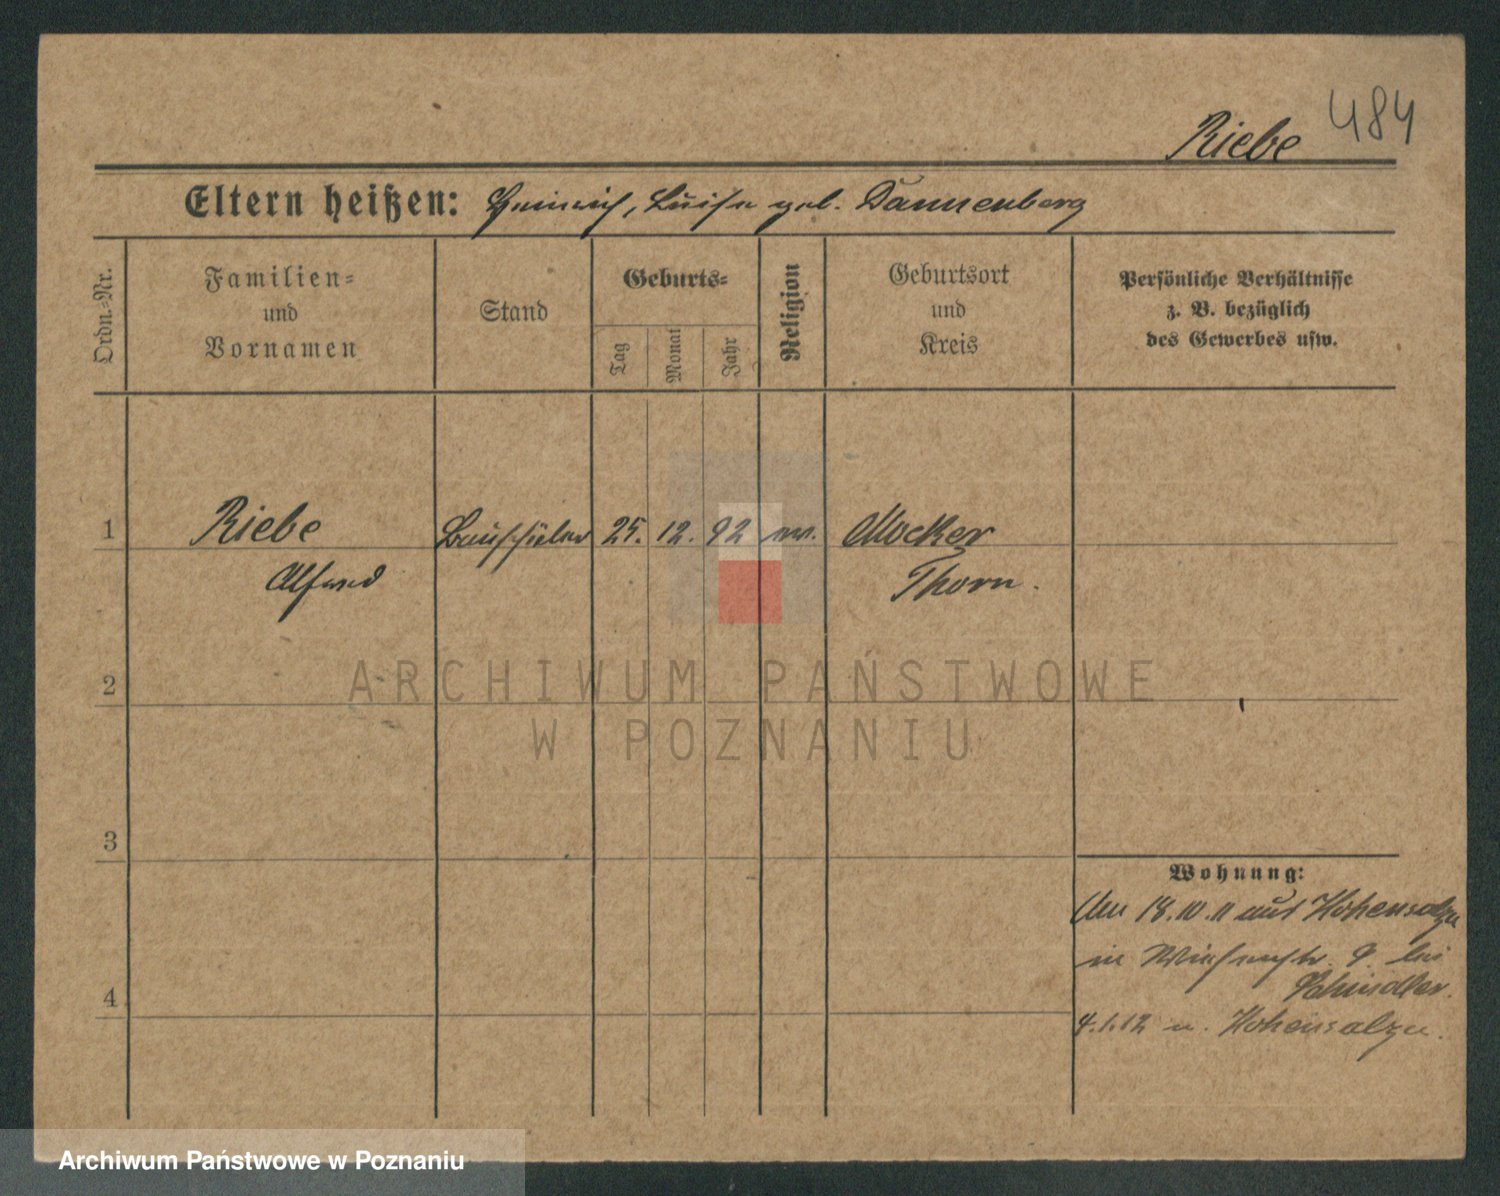 Riebe 484
Eltern heißen: Heinrich, Luise geb. Dannenberg
Ordn.-Nr.
Familien-
und
Vornamen
Stand
Geburts-
Tag
Monat
Jahr
Religion
Geburtsort
und
Kreis
Persönliche Verhältnisse
z. B. bezüglich
des Gewerbes usw.
1 Riebe Bauschüler 25. 12. 92 ev. Mocker
Alfred Thorn.
2
3
4
Wohnung:
Am 18.10.11 aus Hohensalza
in Wiesenstr. 9. bei
Schindler.
4.1.12 n. Hohensalza.
ARCHIWUM PAŃSTWOWE
W POZNANIU
Archiwum Państwowe w Poznaniu